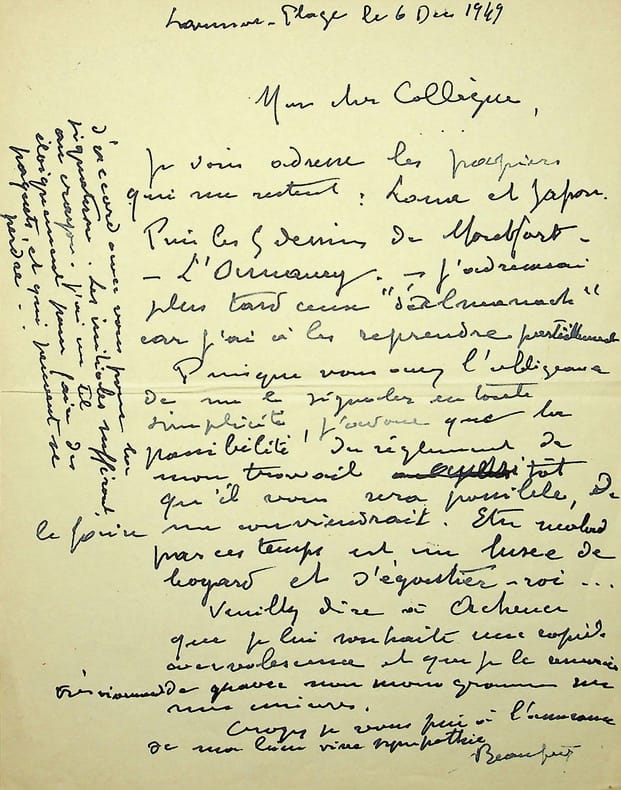 Larmor-Plage le 6 Dec 1949
Mon cher Collègue,
Je vous adresse les papiers
qui me restent : Lana et Japon.
Puis les 5 dessins de Montfort -
- L'Ormaney. - J'adresserai
plus tard ceux "d'almanach"
car j'ai à les reprendre partiellement
Puisque vous avez l'obligeance
de me le signaler en toute
simplicité, j'avoue que la
possibilité du réglement de
mon travail aussitôt
qu'il vous sera possible, de
le faire me conviendrait. Etre malade
par ces temps est un luxe de
boyard et d'égoutier-roi ...
Veuillez dire à
que je lui souhaite une rapide
convalescence et que je le remercie
très vivement de graver mon monogramme sur
mes
Croyez je vous prie à l'assurance
de ma bien vive sympathie
d'accord avec vous pour la
signature. Les initiales suffiront,
au crayon. J'ai un tel
éloignement pour faire des
paquets, et qui peuvent se
perdre ..